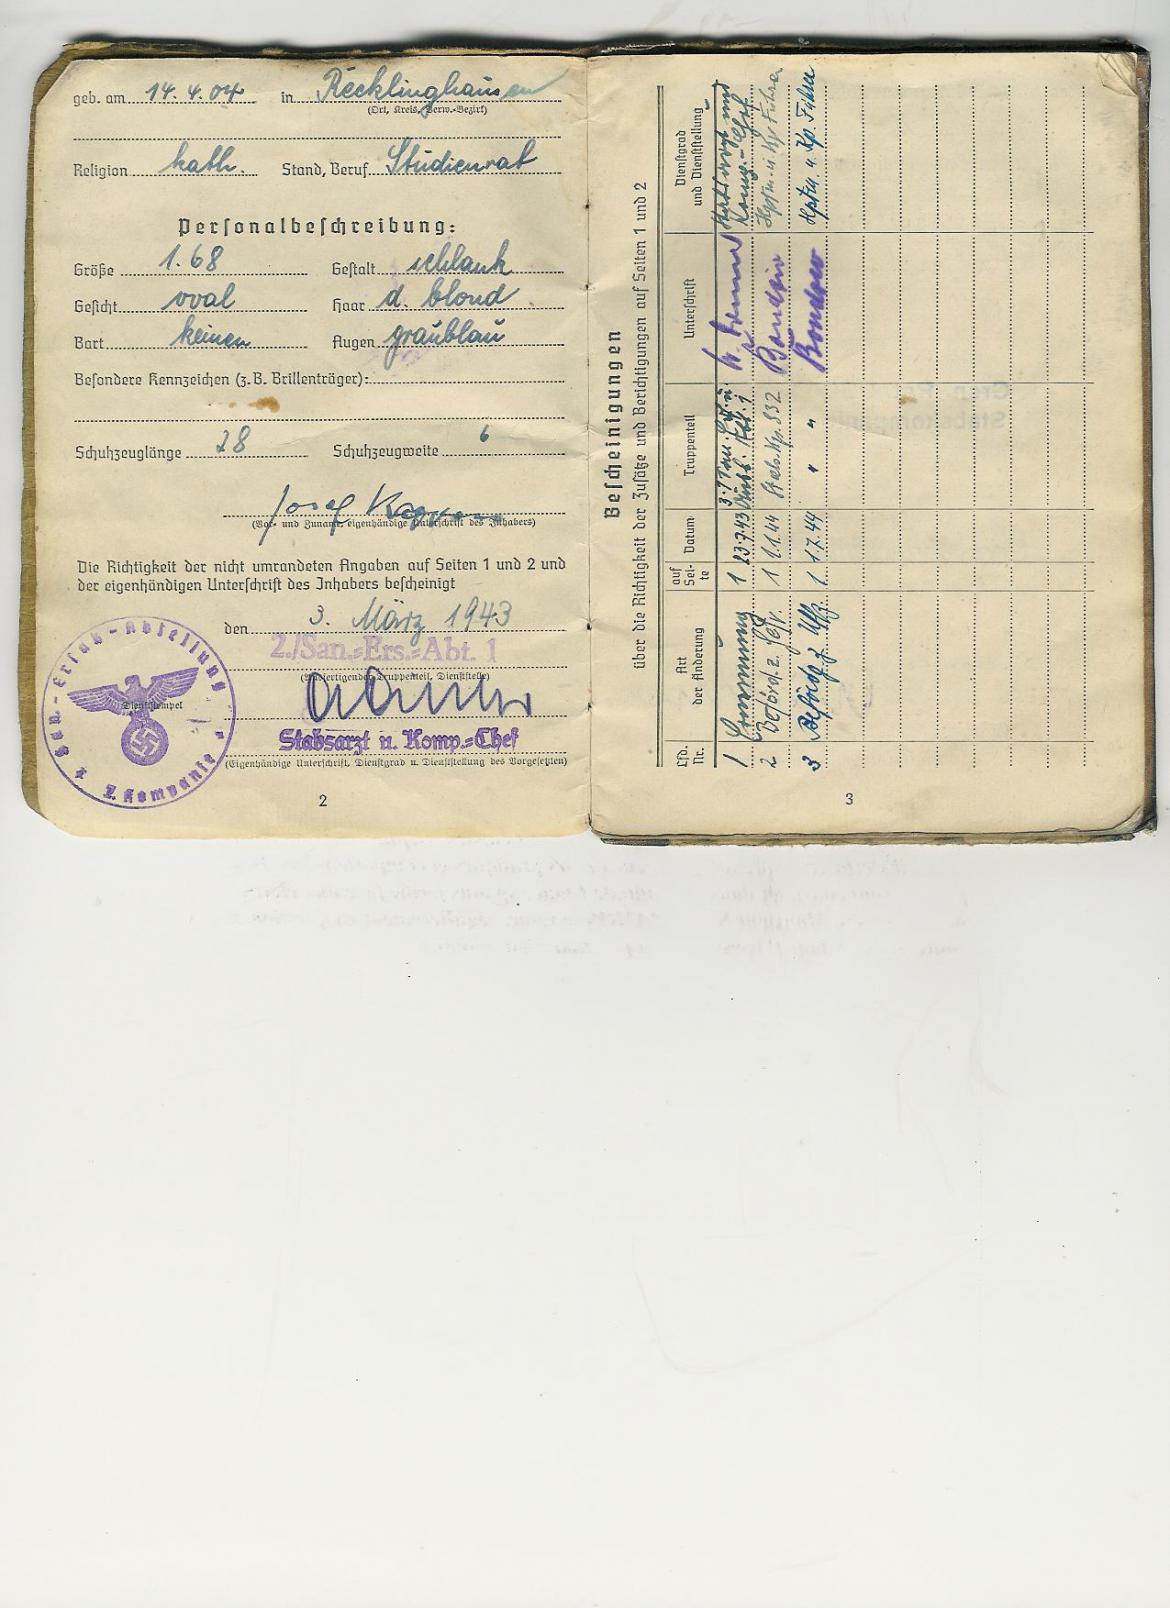 geb. am 14.4.04 in Recklinghausen
(Ort, Kreis, Verw.-Bezirk)
Religion kath. Stand, Beruf Studienrat
Personalbeschreibung:
Größe 1.68 Gestalt schlank
Gesicht oval Haar d. blond
Bart keinen Augen graublau
Besondere Kennzeichen (z.B. Brillenträger):
Schuhzeuglänge 28 Schuhzeugweite 6
Josef
(Vor- und Zuname, eigenhändige Unterschrift des Inhabers)
Die Richtigkeit der nicht umrandeten Angaben auf Seiten 1 und 2 und
der eigenhändigen Unterschrift des Inhabers bescheinigt
den 3. März 1943
2./San.-Ers.-Abt. 1
(Ausfertigender Truppenteil, Dienststelle)
Stabsarzt u. Komp.-Chef
(Eigenhändige Unterschrift, Dienstgrad u. Dienststellung des Vorgesetzten)
San.-Ersatz-Abteilung 1
2. Kompanie
Dienststempel
2
Bescheinigungen
über die Richtigkeit der Zusätze und Berichtigungen auf Seiten 1 und 2
Lfd. Nr. Art der Änderung auf Seite Datum Truppenteil Unterschrift Dienstgrad und Dienststellung
1 Ernennung 1 23.7.43 und
2 Beförd. z. Gefr. 1 1.1.44 Stabs.Kp. 832 Hptm. u. Kp Führer
3 Beförd. z. Uffz. 1 1.7.44 " " Hptm. u. Kp. Führer
3